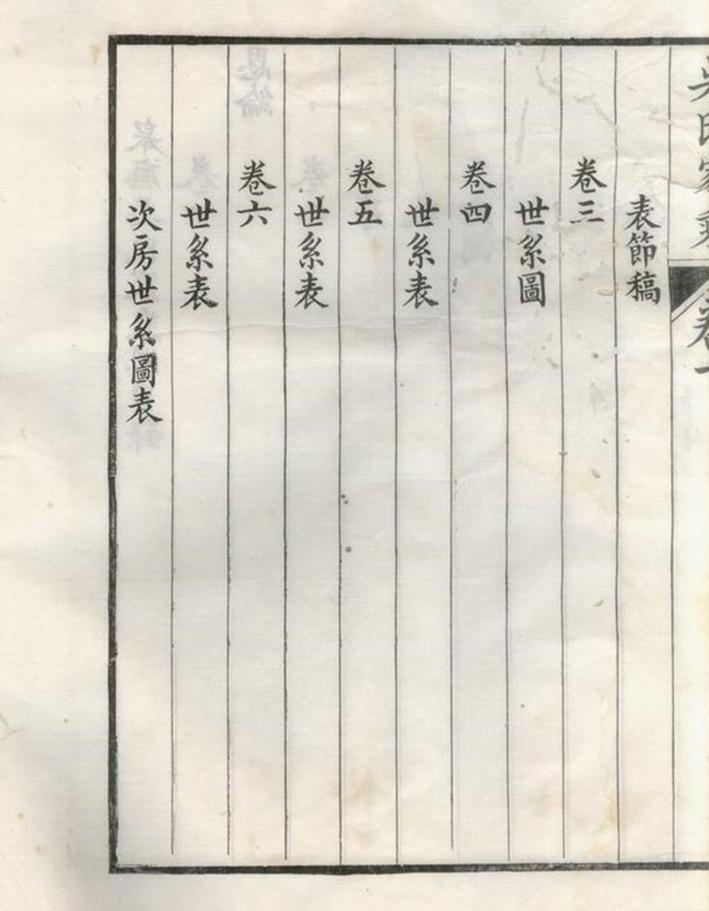 吳氏家乘
卷
表節稿
卷三
世系圖
卷四
世系表
卷五
世系表
卷六
世系表
次房世系圖表